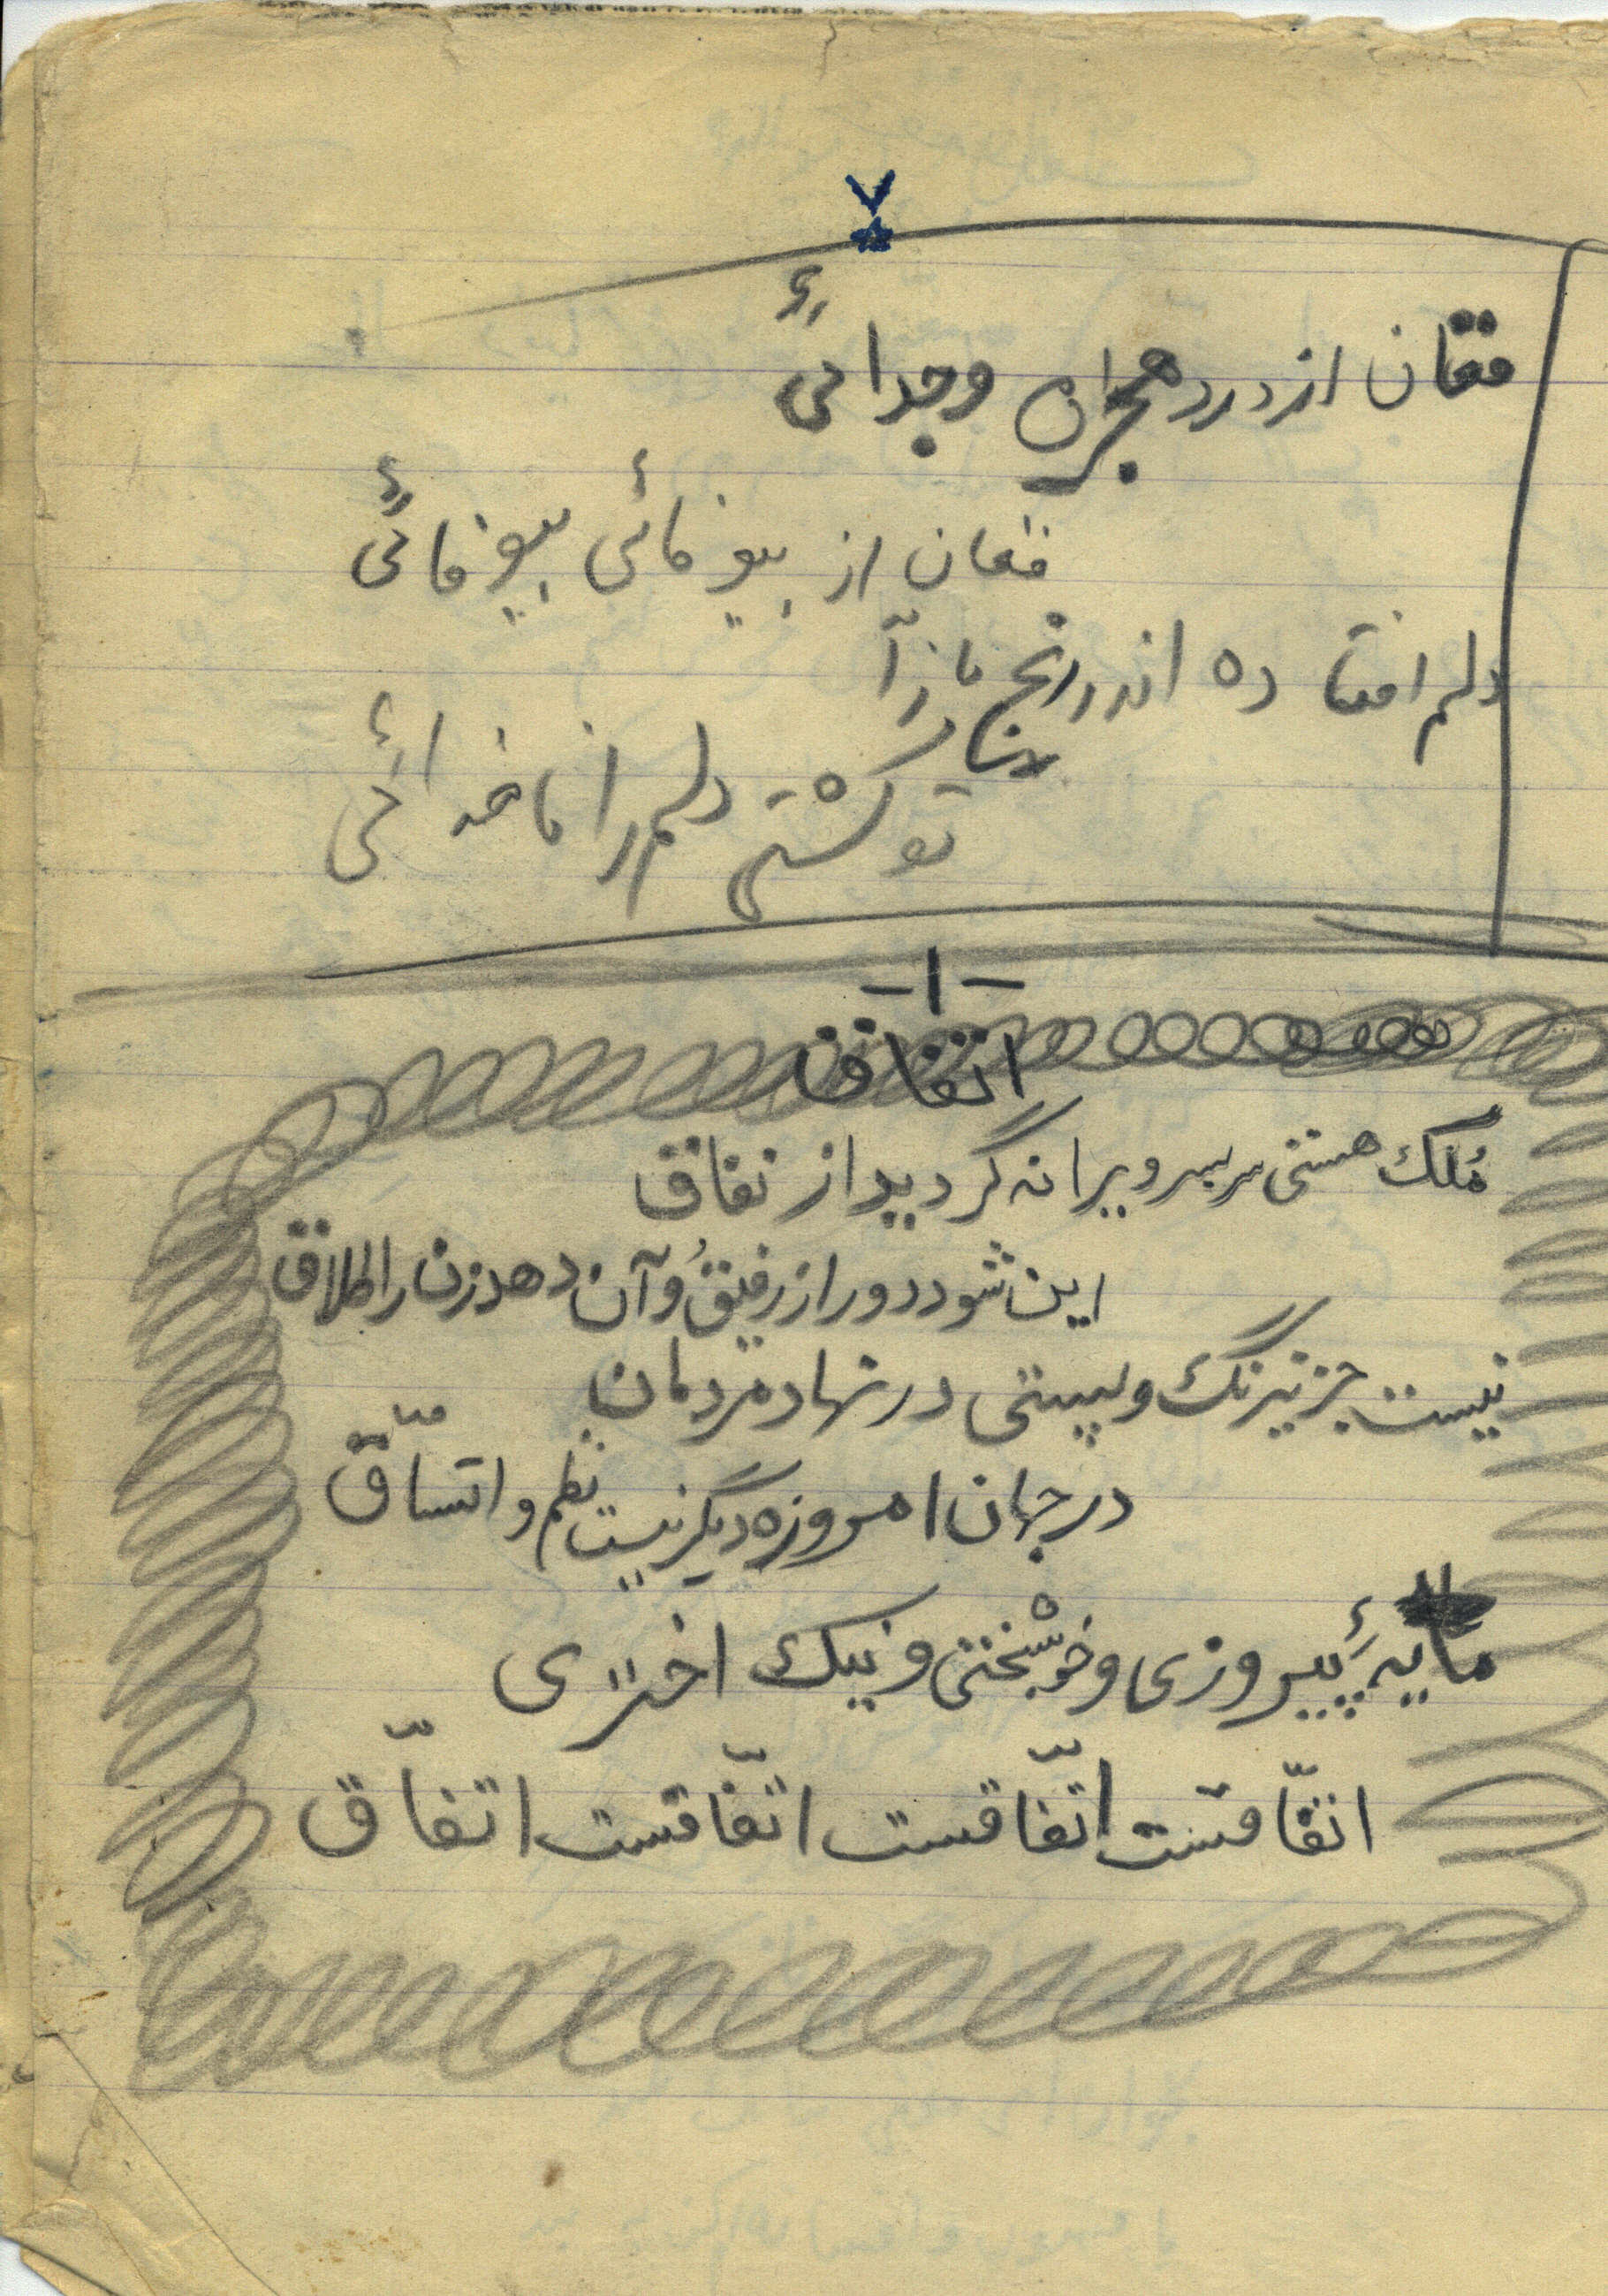 ۷
فغان از درد هجران وجدائی
فغان از بیوفائی بیوفائی
دلم افتاده اندر رنج بازآ
تو کشتی دلم را ناخدائی
-۱-
اتفاق
مُلک هستی سربسر ویرانه گردید از نفاق
این شود دور از رفیقُ و آن دهد زن را طلاق
نیست جز نیرنگ و پستی در نهاد مردمان
در جهان امروزه دیگر نیست نظم و اتّساق
مایهٔ پیروزی و خوشبختی و نیک اختری
اتفّاقست اتفّاقست اتفّاقست اتفّاق